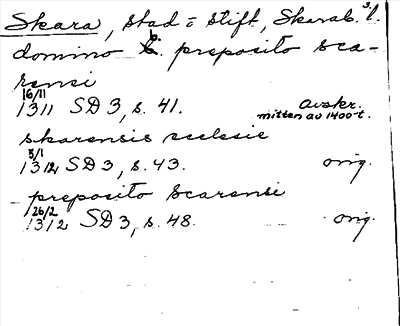 Skara, stad o stift, Skarab. s. l.
domino b. preposito sca-
rensi
16/11
1311 SD 3, s. 41. avskr.
mitten av 1400-t.
skarensis ecclesie
5/1
1312 SD 3, s. 43. orig.
preposito scarensi
26/2
1312 SD 3, s. 48. orig.